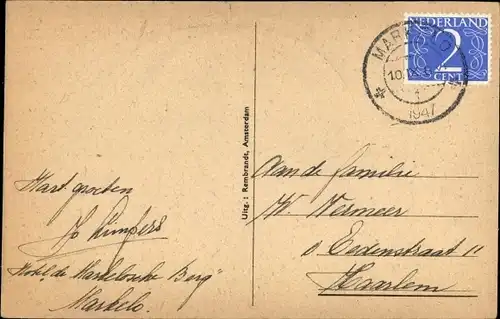 NEDERLAND
2
CENT
MARKELO
10
1947
Uitg.: Rembrandt, Amsterdam
Aan de familie
W. Vermeer
Eedenstraat 11
Haarlem
Hart. groeten
Hotel de Markelosche Berg"
Markelo.